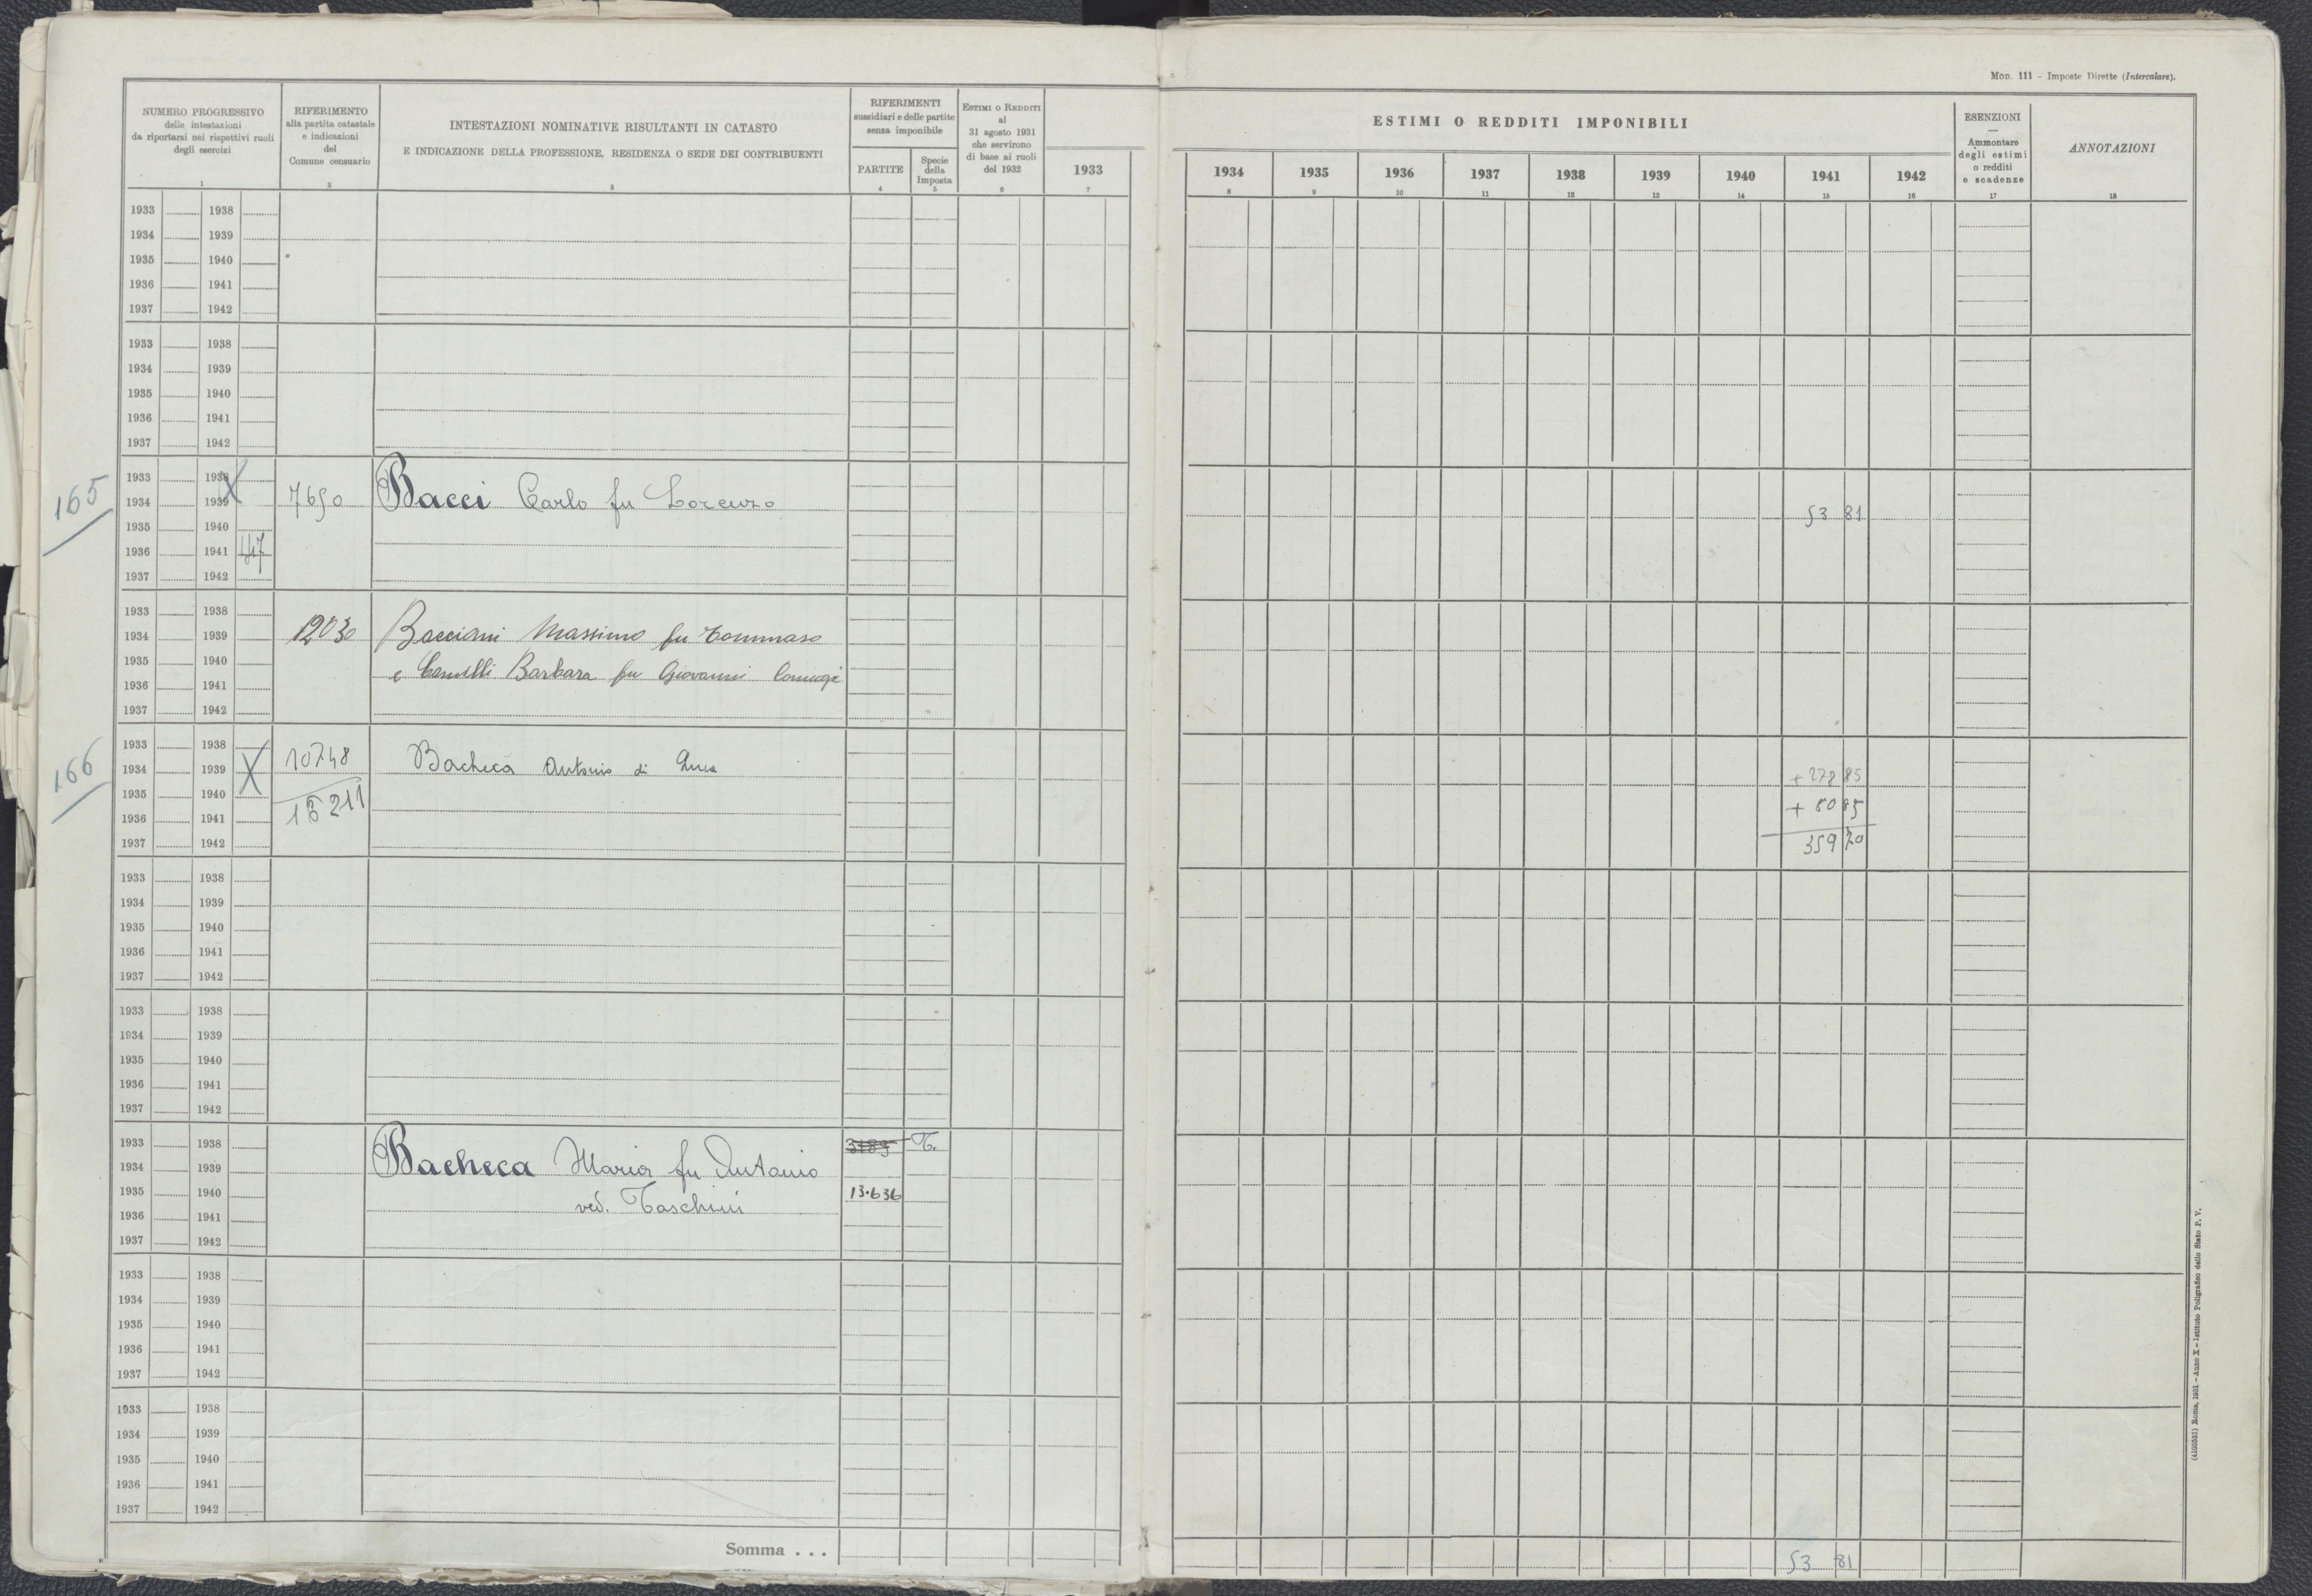 MOD. 111 – Imposte Dirette (Intercalare).
NUMERO PROGRESSIVO
delle intestazioni
da riportarsi nei rispettivi ruoli
degli esercizi
1
RIFERIMENTO
alla partita catastale
e indicazioni
del
Comune censuario
2
INTESTAZIONI NOMINATIVE RISULTANTI IN CATASTO
E INDICAZIONE DELLA PROFESSIONE, RESIDENZA O SEDE DEI CONTRIBUENTI
3
RIFERIMENTI
sussidiari e delle partite
senza imponibile
PARTITE
4
Specie
della
Imposta
5
ESTIMI O REDDITI
al
31 agosto 1931
che servirono
di base ai ruoli
del 1932
6
1933
7
ESTIMI O REDDITI IMPONIBILI
1934 1935 1936 1937 1938 1939 1940 1941 1942
8 9 10 11 12 13 14 15 16
ESENZIONI
—
Ammontare
degli estimi
o redditi
e scadenze
17
ANNOTAZIONI
18
1933 1938
1934 1939
1935 1940
1936 1941
1937 1942
1933 1938
1934 1939
1935 1940
1936 1941
1937 1942
165
1933 1938 X
1934 1939 7650 Bacci Carlo fu Lorenzo 53 81
1935 1940
1936 1941 417
1937 1942
1933 1938
1934 1939 12030 Baccioni Massimo fu Tommaso
1935 1940
e Camilli Barbara fu Giovanni Coniugi
1936 1941
1937 1942
166
1933 1938 10748
1934 1939 X Bacheca Antonio di Luca + 278 85
1935 1940 + 80 85
1936 1941 15211
1937 1942 359 70
1933 1938
1934 1939
1935 1940
1936 1941
1937 1942
1933 1938
1934 1939
1935 1940
1936 1941
1937 1942
1933 1938 3183 T.
1934 1939 Bacheca Maria fu Antonio
1935 1940 13.636
1936 1941 ved. Taschini
1937 1942
1933 1938
1934 1939
1935 1940
1936 1941
1937 1942
1933 1938
1934 1939
1935 1940
1936 1941
1937 1942
Somma . . . 53 81
(4108531) Roma, 1931 – Anno X – Istituto Poligrafico dello Stato P. V.